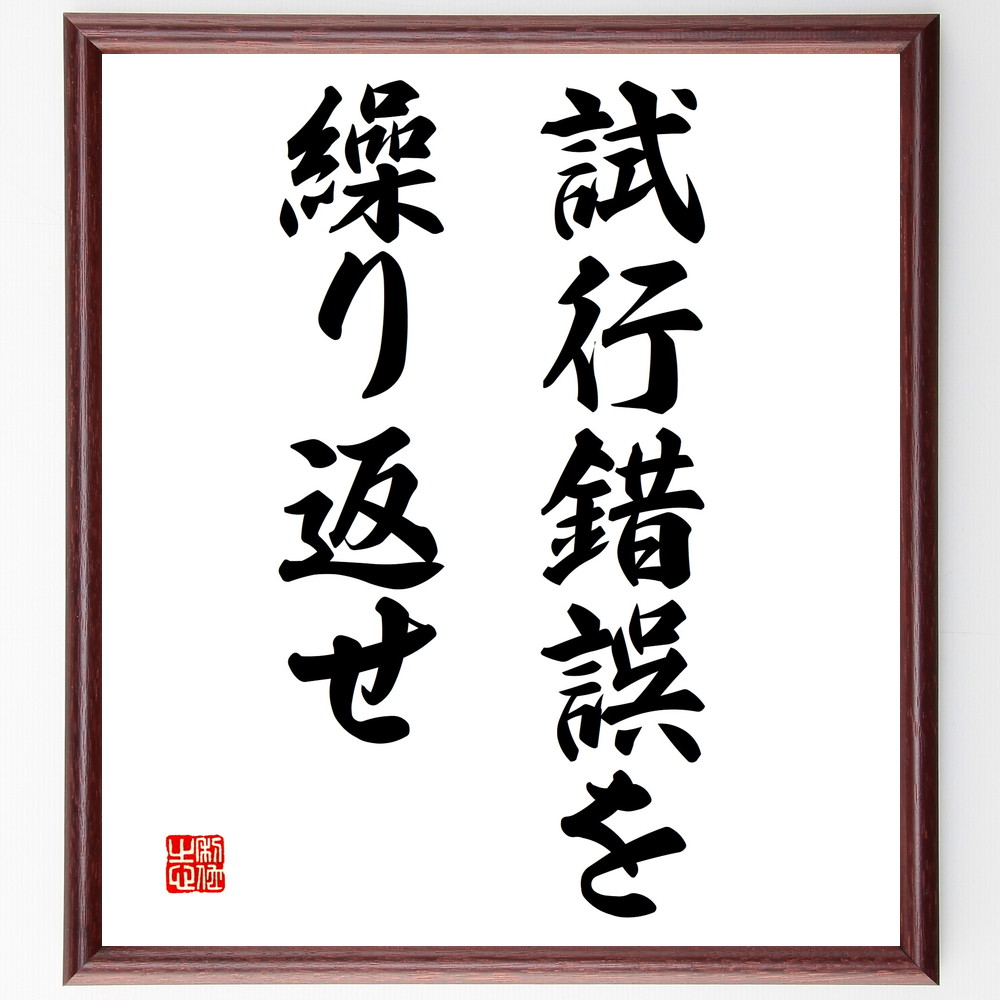 試行錯誤を
繰り返せ